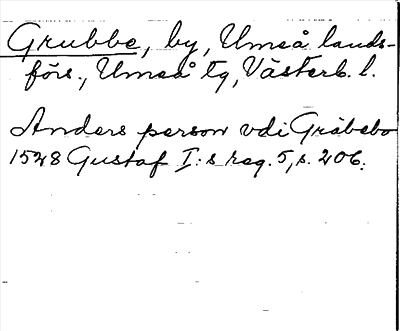 Grubbe, by, Umeå lands-
förs., Umeå tg, Västerb. l.
Anders person vdi Gråbebo
1528 Gustaf I:s reg. 5, s. 206.